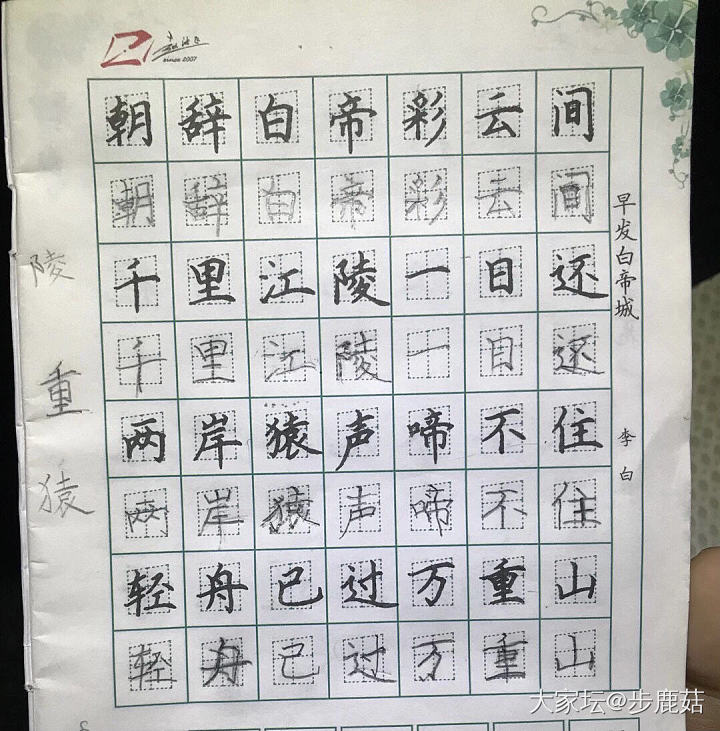 since 2007
朝辞白帝彩云间
朝辞白帝彩云间
千里江陵一日还
千里江陵一日还
两岸猿声啼不住
两岸猿声啼不住
轻舟已过万重山
轻舟已过万重山
早发白帝城
李白
陵
重
猿
大家坛@步鹿菇